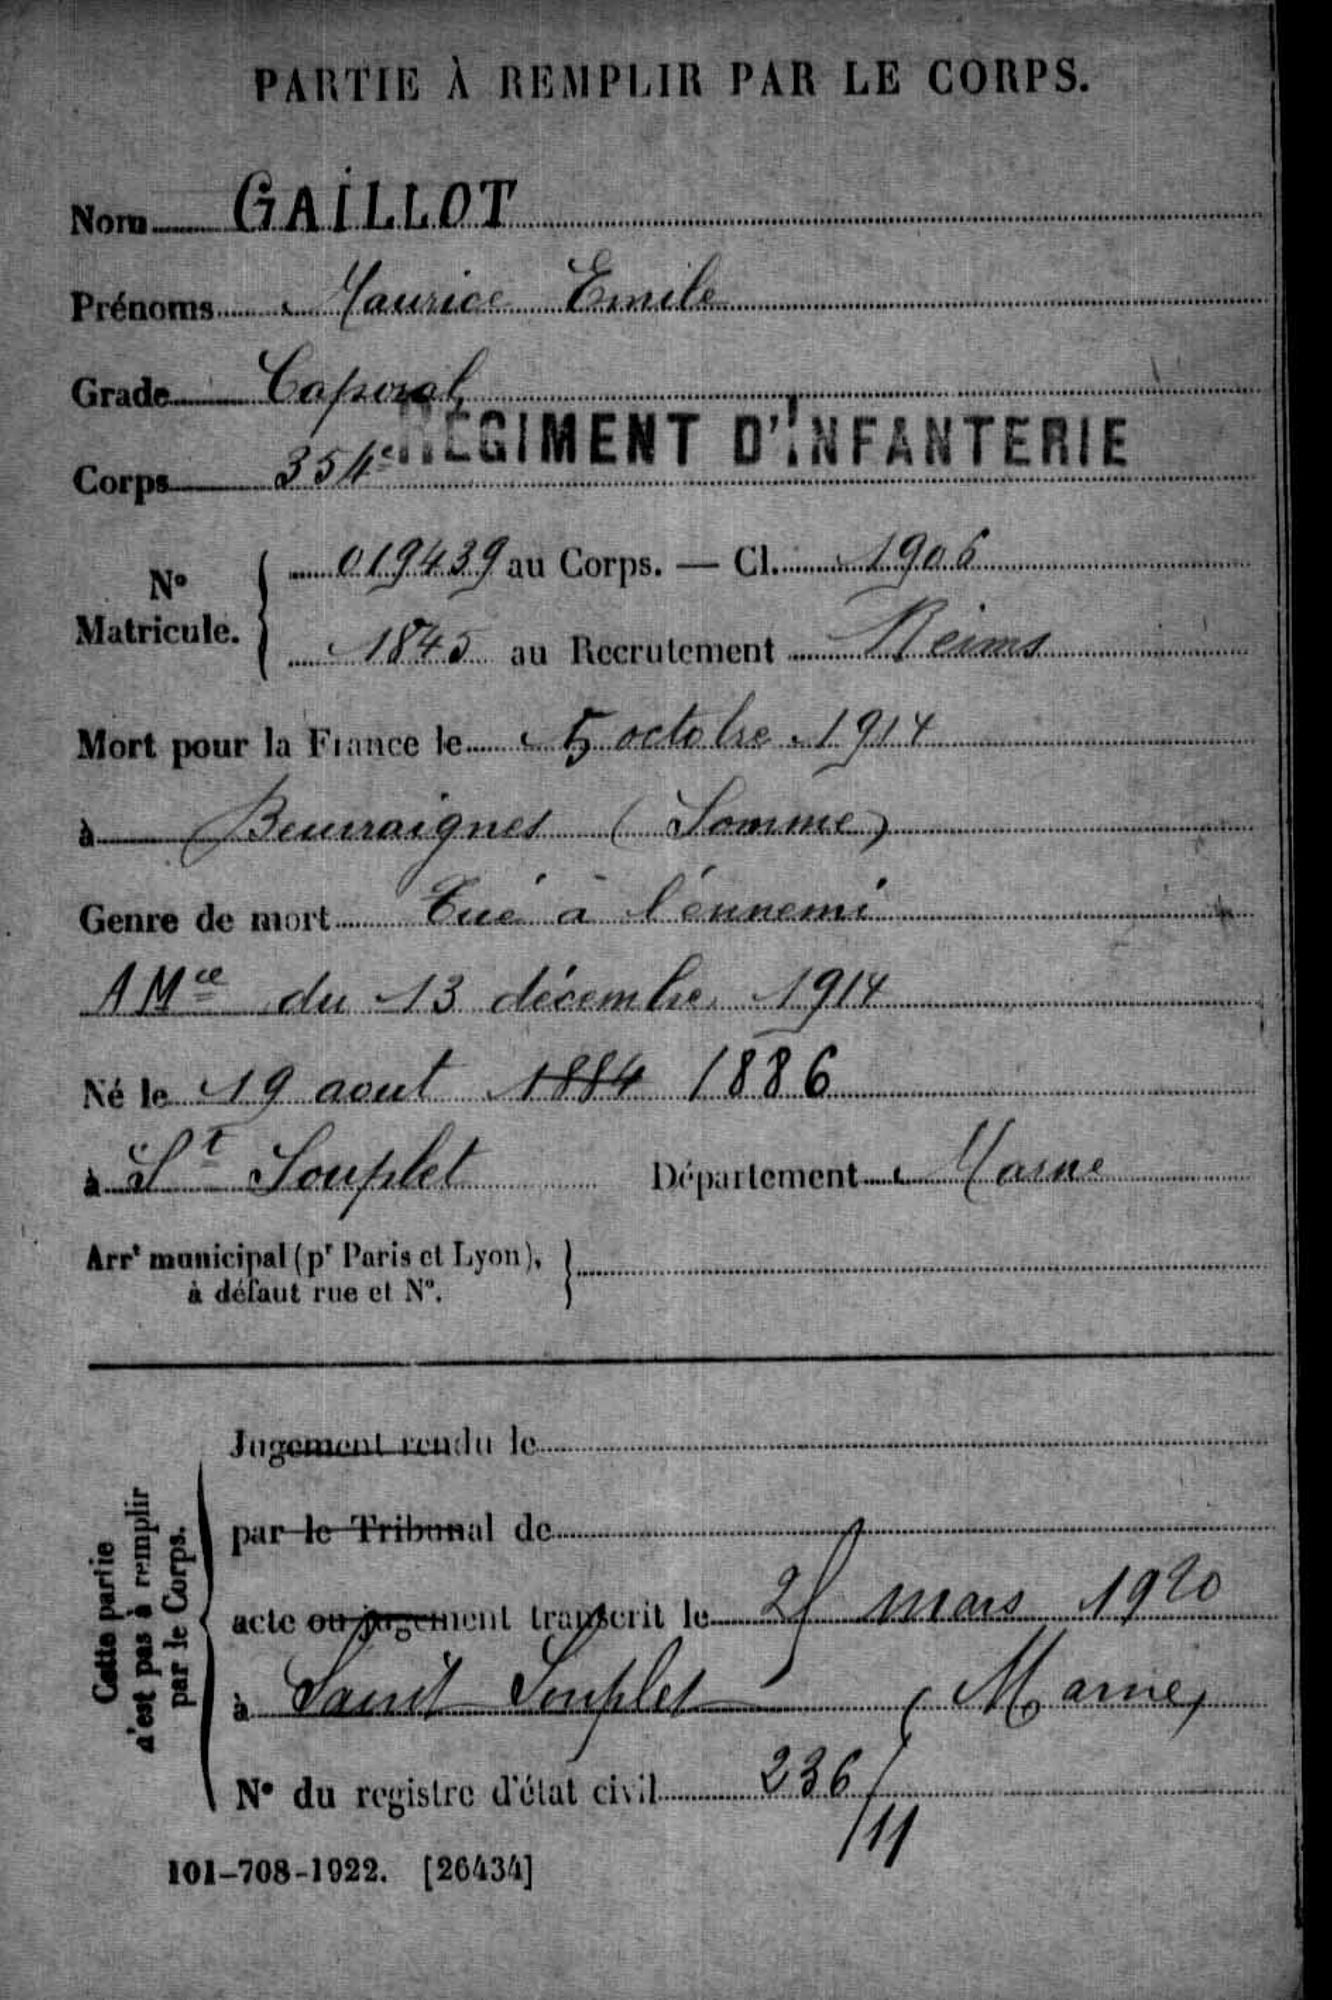 PARTIE À REMPLIR PAR LE CORPS.
Nom GAILLOT
Prénoms Maurice Emile
Grade Caporal
Corps 354e RÉGIMENT D'INFANTERIE
No Matricule.
019439 au Corps. — Cl. 1906
1845 au Recrutement Reims
Mort pour la France le 5 octobre 1914
à Beuvraignes (Somme)
Genre de mort Tué à l'ennemi
A Mce du 13 décembre 1914
Né le 19 aout 1884 1886
à St Souplet Département Marne
Arrt municipal (pr Paris et Lyon),
à défaut rue et No.
Cette partie
n'est pas à remplir
par le Corps.
Jugement rendu le
par le Tribunal de
acte ou jugement transcrit le mars 1920
à Saint Souplet (Marne)
No du registre d'état civil 236/11
101-708-1922. [26434]